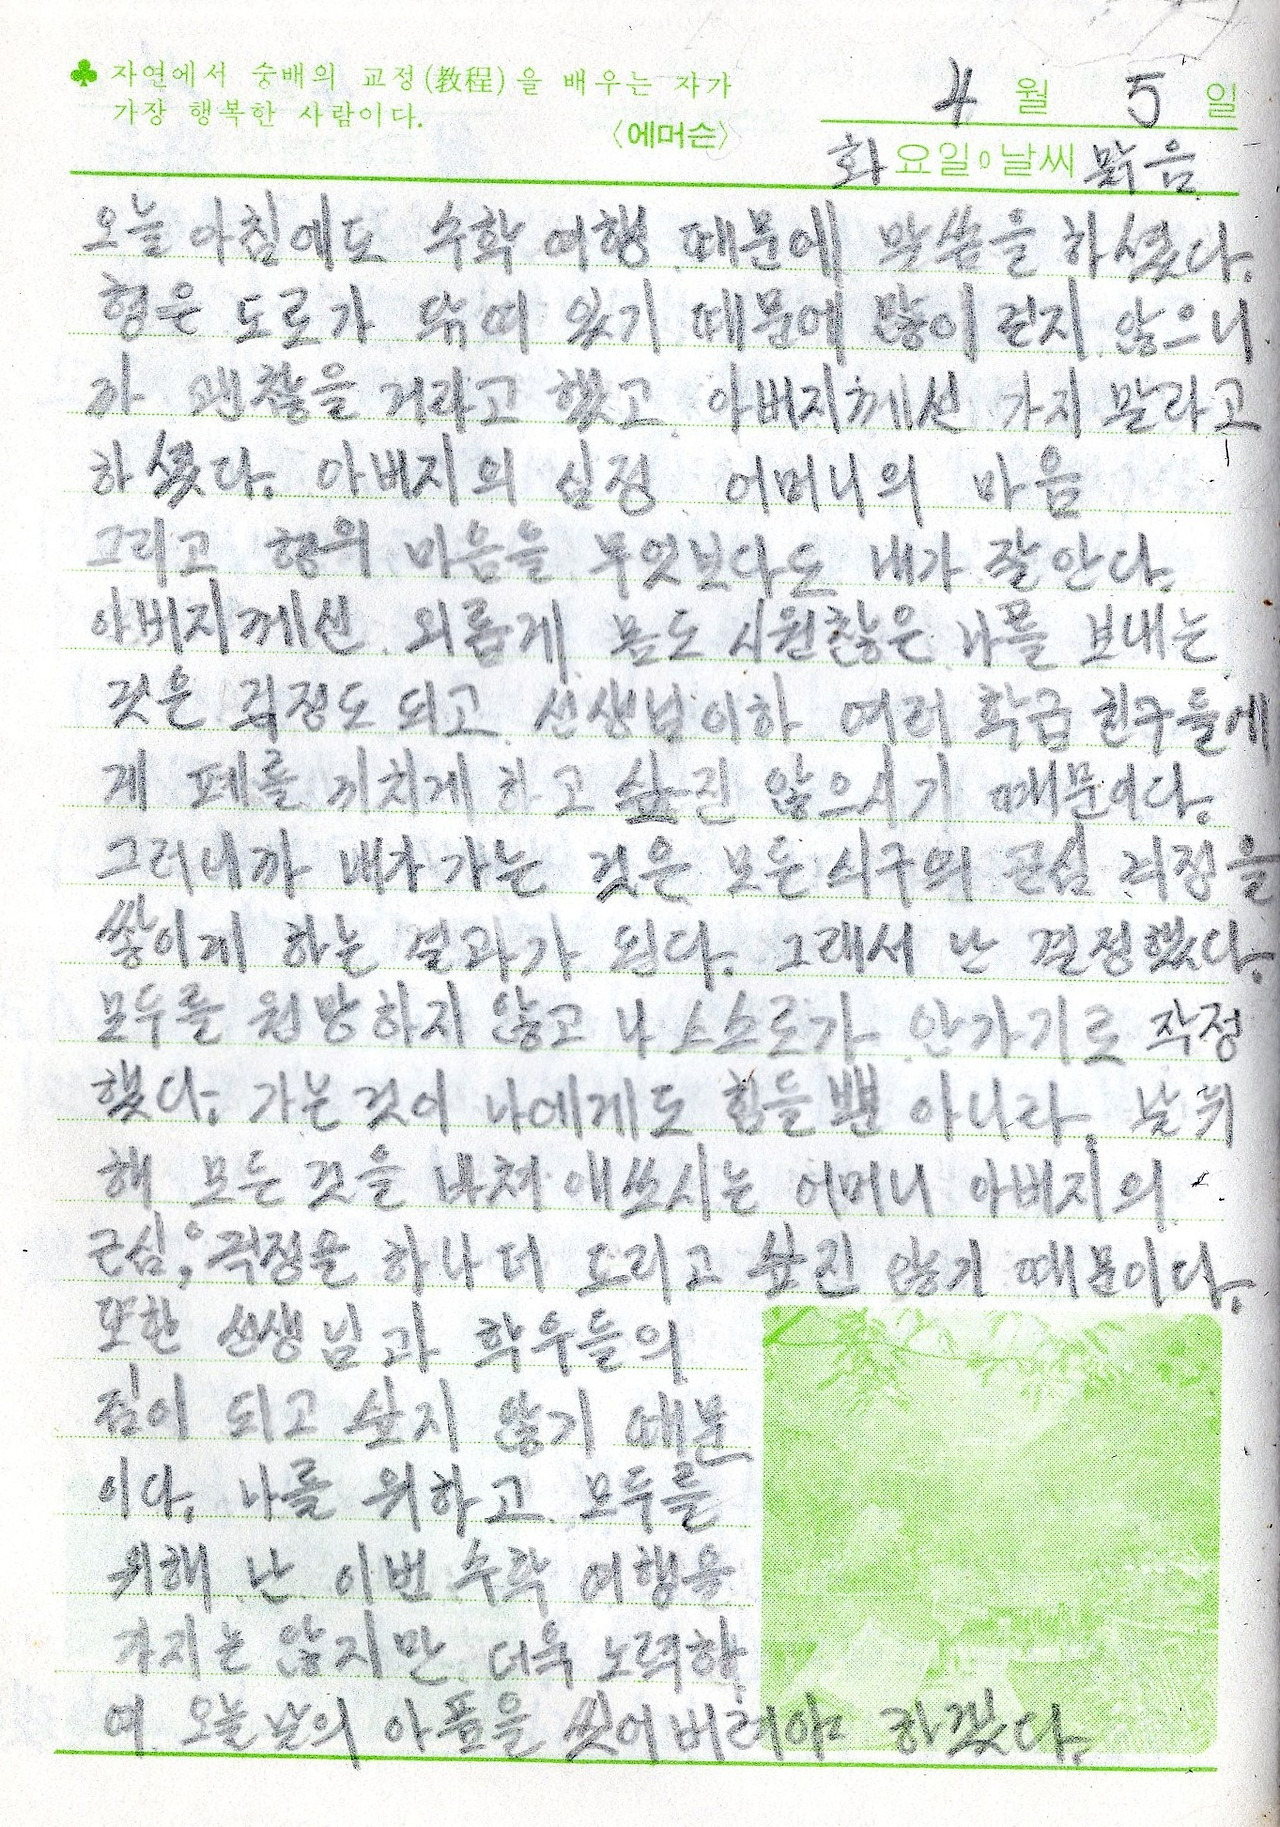 ♣ 자연에서 숭배의 교정(敎程)을 배우는 자가
가장 행복한 사람이다.
〈에머슨〉
4 월 5 일
화 요일 날씨 맑음
오늘 아침에도 수학 여행 때문에 말씀을 하셨다.
형은 도로가 닦여 있기 때문에 많이 걷지 않으니
까 괜찮을 거라고 했고 아버지께선 가지 말라고
하셨다. 아버지의 심정 어머니의 마음
그리고 형의 마음을 무엇보다도 내가 잘 안다.
아버지께선 외롭게 몸도 시원찮은 나를 보내는
것은 걱정도 되고 선생님이하 여러 학급 친구들에
게 폐를 끼치게 하고 싶진 않으시기 때문이다.
그러니까 내가 가는 것은 모든 식구의 근심 걱정을
쌓이게 하는 결과가 된다. 그래서 난 결정했다.
모두를 원망하지 않고 나 스스로가 안가기로 작정
했다. 가는것이 나에게도 힘들뿐 아니라 날 위
해 모든 것을 바쳐 애쓰시는 어머니 아버지의
근심, 걱정을 하나 더 드리고 싶진 않기 때문이다.
또한 선생님과 학우들의
짐이 되고 싶지 않기 때문
이다. 나를 위하고 모두를
위해 난 이번 수학 여행을
가지는 않지만 더욱 노력하
여 오늘날의 아픔을 씻어버려야 하겠다.